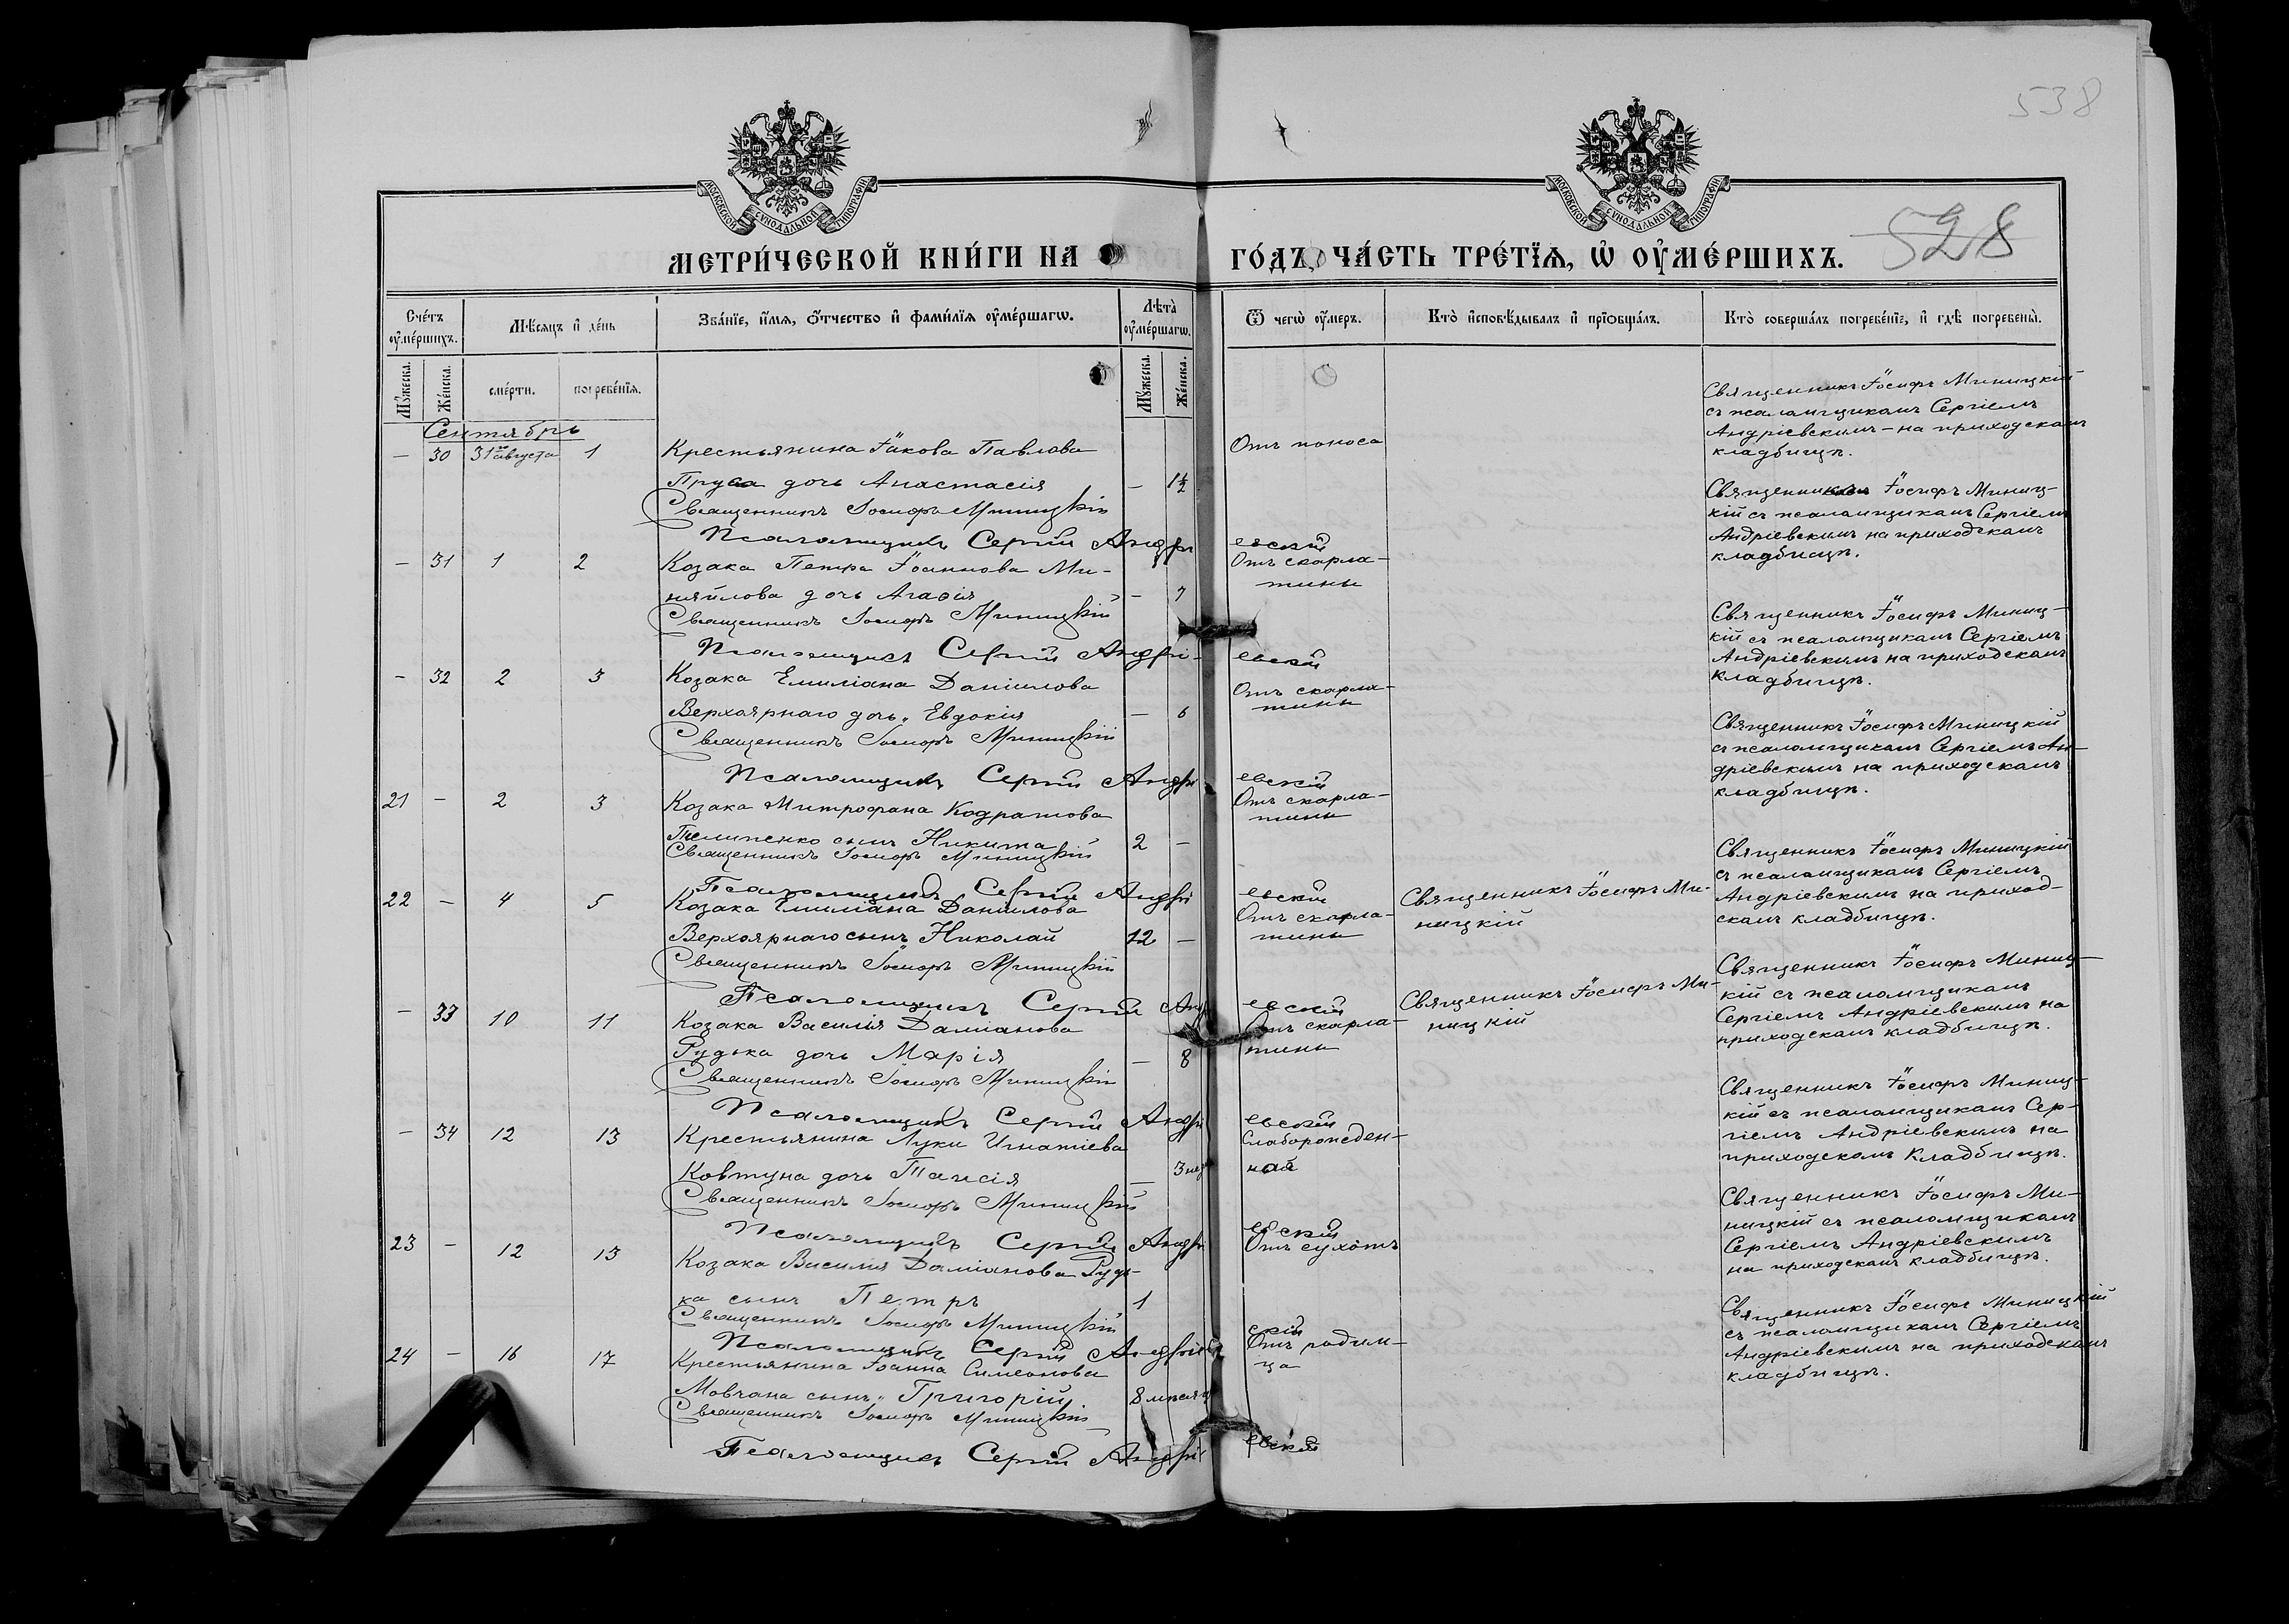 538
МОСКОВСКОЙ СУНОДАЛЬНОЙ ТИПОГРАФІИ
МОСКОВСКОЙ СУНОДАЛЬНОЙ ТИПОГРАФІИ
528
МЕТРИ́ЧЕСКОЙ КНИ́ГИ НА
ГО́ДЪ, ЧА́СТЬ ТРЕ́ТЇѦ, Ѡ҆ ОУ҆МЕ́РШИХЪ.
Сче́тъ оу҆ме́ршихъ.
Мѣ́сѧцъ и҆ де́нь
Зва́нїе, и҆́мѧ, ѻ҆́тчество и҆ фами́лїѧ оу҆ме́ршагѡ.
Лѣ́та оу҆ме́ршагѡ.
Ѿ чегѡ̀ оу҆́меръ.
Кто̀ и҆сповѣ́дывалъ и҆ прїѻбща́лъ.
Кто̀ соверша́лъ погребе́нїе, и҆ гдѣ̀ погребены̀.
Мꙋ́жеска.
Же́нска.
сме́рти.
погребе́нїѧ.
Мꙋ́жеска.
Же́нска.
Сентябрь
— 30 31го августа 1 Крестьянина Іакова Павлова
Пруса дочь Анастасія — 1½
Отъ поноса
Священникъ Іосифъ Миницкій
съ псаломщикомъ Сергіемъ
Андріевскимъ – на приходскомъ
кладбищѣ.
Священникъ Іосифъ Миницкій
Псаломщикъ Сергій Андріевскій
— 31 1 2 Козака Петра Іоаннова Ми-
няйлова дочь Агафія — 7
Отъ скарла-
тины
Священникъ Іосифъ Миниц-
кій съ псаломщикомъ Сергіемъ
Андріевскимъ на приходскомъ
кладбищѣ.
Священникъ Іосифъ Миницкій
Псаломщикъ Сергій Андріевскій
— 32 2 3 Козака Емиліана Даніилова
Верхоярнаго дочь Евдокія — 6
Отъ скарла-
тины
Священникъ Іосифъ Миниц-
кій съ псаломщикомъ Сергіемъ
Андріевскимъ на приходскомъ
кладбищѣ.
Священникъ Іосифъ Миницкій
Псаломщикъ Сергій Андріевскій
21 — 2 3 Козака Митрофана Кодратова
Телипенко сынъ Никита 2 —
Отъ скарла-
тины
Священникъ Іосифъ Миницкій
съ псаломщикомъ Сергіемъ Ан-
дріевскимъ на приходскомъ
кладбищѣ.
Священникъ Іосифъ Миницкій
Псаломщикъ Сергій Андріевскій
22 — 4 5 Козака Емиліана Даніилова
Верхоярнаго сынъ Николай 12 —
Отъ скарла-
тины
Священникъ Іосифъ Ми-
ницкій
Священникъ Іосифъ Миницкій
съ псаломщикомъ Сергіемъ
Андріевскимъ на приход-
скомъ кладбищѣ.
Священникъ Іосифъ Миницкій
Псаломщикъ Сергій Андріевскій
— 33 10 11 Козака Василія Даміанова
Рудька дочь Марія — 8
Отъ скарла-
тины
Священникъ Іосифъ Ми-
ницкій
Священникъ Іосифъ Миниц-
кій съ псаломщикомъ
Сергіемъ Андріевскимъ на
приходскомъ кладбищѣ.
Священникъ Іосифъ Миницкій
Псаломщикъ Сергій Андріевскій
— 34 12 13 Крестьянина Луки Игнатіева
Ковтуна дочь Таисія — 3 нед
Слаборожден-
ная
Священникъ Іосифъ Миниц-
кій съ псаломщикомъ Сер-
гіемъ Андріевскимъ на
приходскомъ кладбищѣ.
Священникъ Іосифъ Миницкій
Псаломщикъ Сергій Андріевскій
23 — 12 13 Козака Василія Даміанова Рудь-
ка сынъ Петръ 1
Отъ сухотъ
Священникъ Іосифъ Ми-
ницкій съ псаломщикомъ
Сергіемъ Андріевскимъ
на приходскомъ кладбищѣ.
Священникъ Іосифъ Миницкій
Псаломщикъ Сергій Андріевскій
24 — 16 17 Крестьянина Іоанна Симеонова
Мовчана сынъ Григорій 8 мѣсяц
Отъ родим-
ца
Священникъ Іосифъ Миницкій
съ псаломщикомъ Сергіемъ
Андріевскимъ на приходскомъ
кладбищѣ.
Священникъ Іосифъ Миницкій
Псаломщикъ Сергій Андріевскій